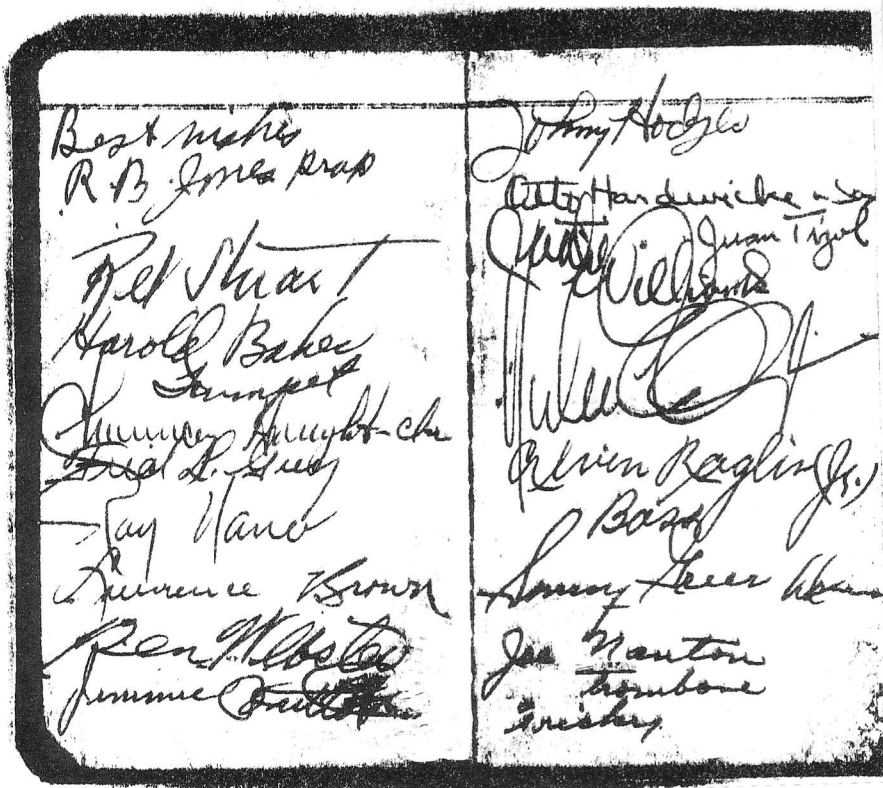 Best wishes
R. B. Jones prop
Rex Stuart
Harold Baker
Trumpet
Fred L. Guy
Ray Nance
Lawrence Brown
Ben Webster
Jimmie Britton
Johnny Hodges
Otto Hardwicke
Juan Tizol
Williams
Alvin Raglin (Jr.)
Bass
Sonny Greer
Joe Nanton
trombone
Tricky